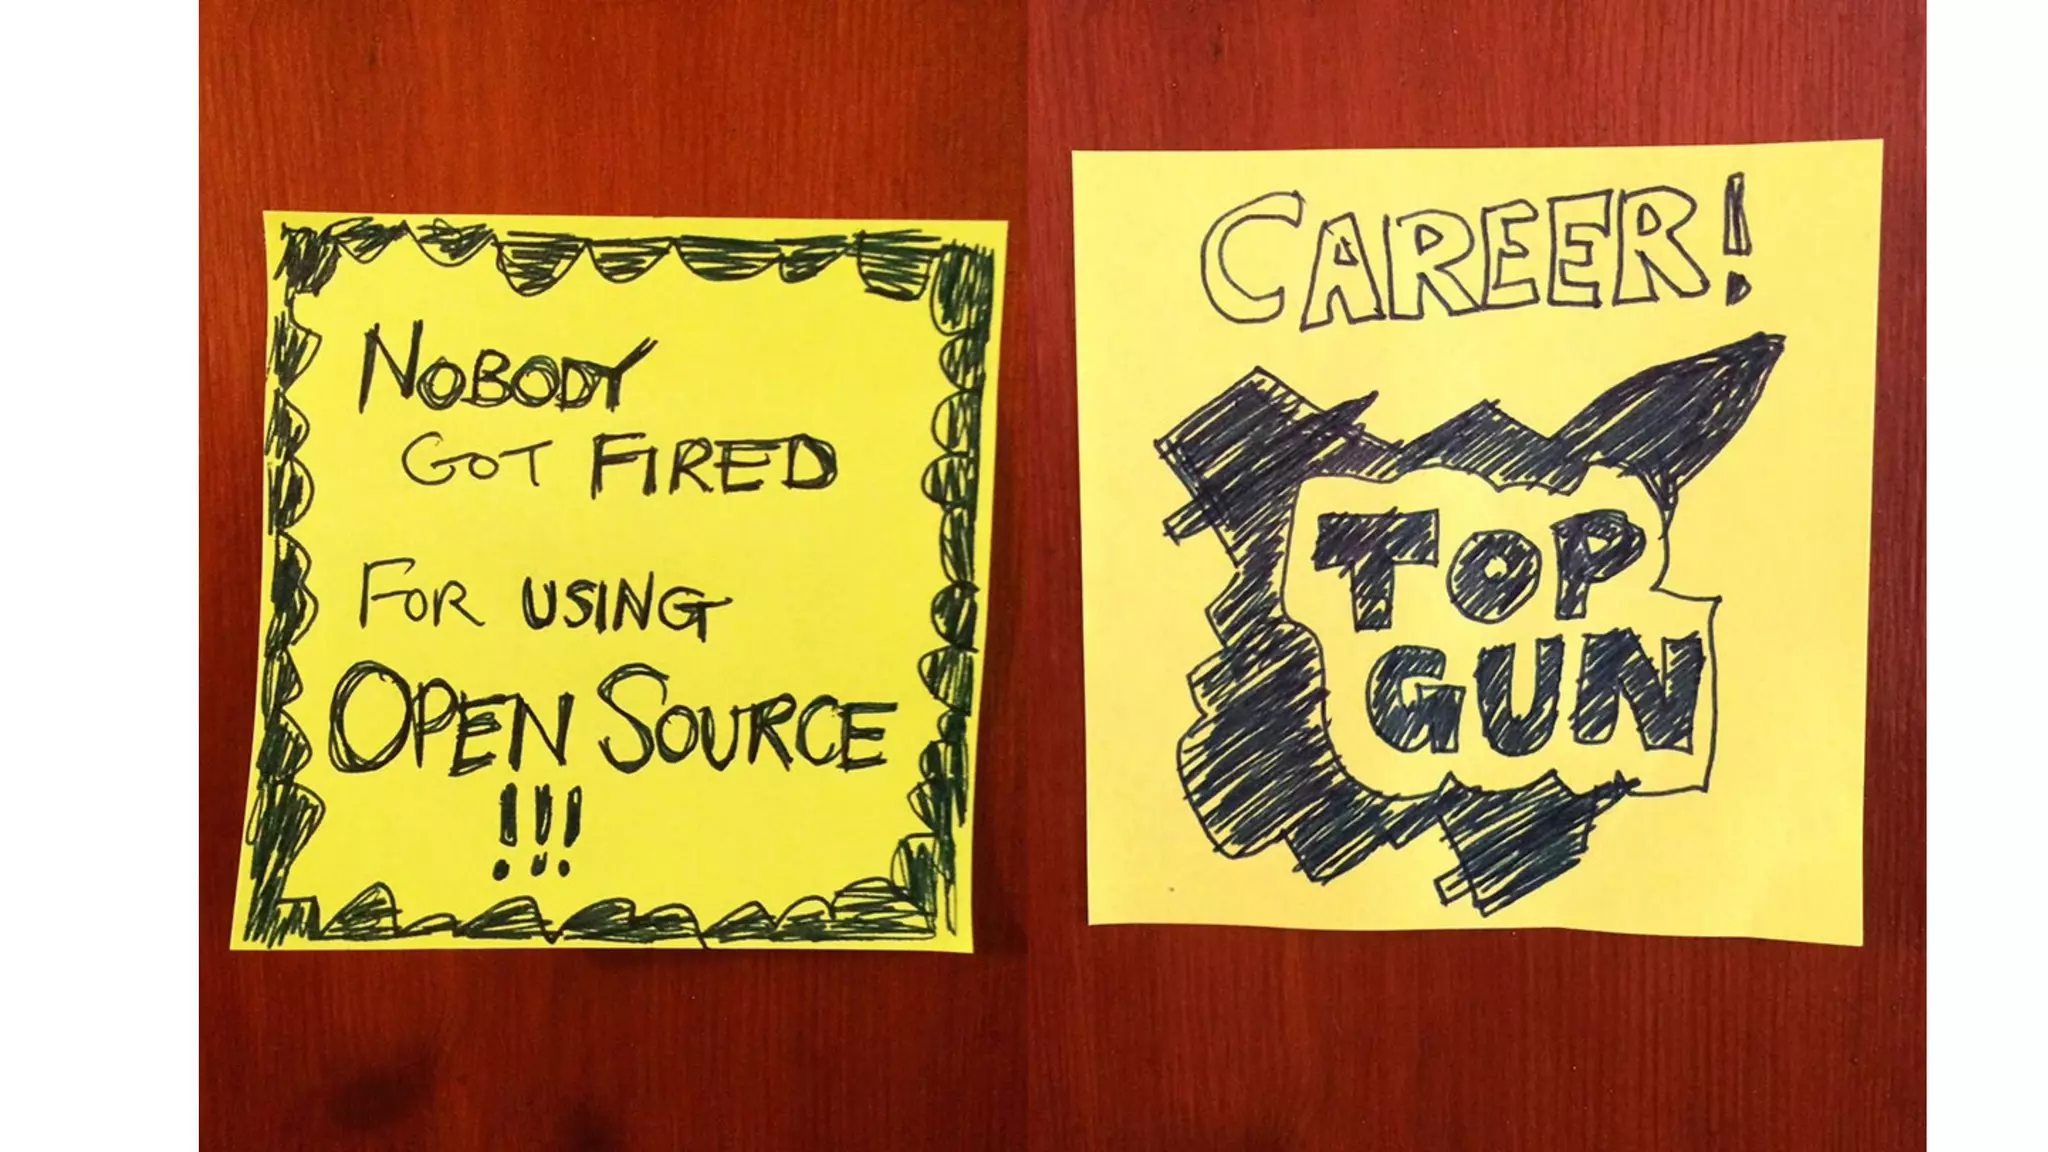 NOBODY
GOT FIRED
FOR USING
OPEN SOURCE
!!!
CAREER!
TOP
GUN